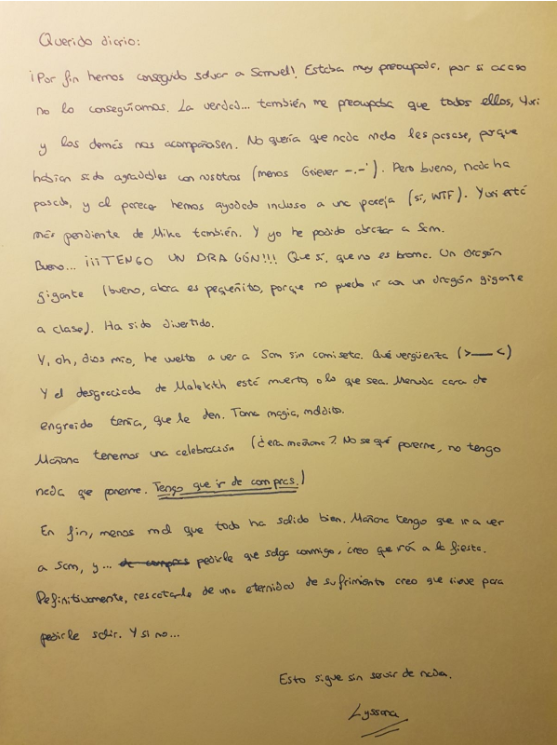 Querido diario:
¡Por fin hemos conseguido salvar a Samuel! Estaba muy preocupada, por si acaso
no lo conseguíamos. La verdad... también me preocupaba que todos ellos, Yuri
y los demás nos acompañasen. No quería que nada malo les pasase, porque
habían sido agradables con nosotros (menos Griever -.-'). Pero bueno, nada ha
pasado, y al parecer hemos ayudado incluso a una pareja (sí, WTF). Yuri está
más pendiente de Mike también. Y yo he podido abrazar a Sam.
Bueno... ¡¡¡TENGO UN DRAGÓN!!! Que sí, que no es broma. Un dragón
gigante (bueno, ahora es pequeñito, porque no puedo ir con un dragón gigante
a clase). Ha sido divertido.
Y, oh, dios mío, he vuelto a ver a Sam sin camiseta. Qué vergüenza (>__<)
Y el desgraciado de Malekith está muerto, o lo que sea. Menuda cara de
engreído tenía, que le den. Toma magia, maldito.
Mañana tenemos una celebración (¿era mañana? No se qué ponerme, no tengo
nada que ponerme. Tengo que ir de compras.)
En fin, menos mal que todo ha salido bien. Mañana tengo que ir a ver
a Sam, y... pedirle que salga conmigo, creo que irá a la fiesta.
Definitivamente, rescatarle de una eternidad de sufrimiento creo que sirve para
pedirle salir. Y si no...
Esto sigue sin servir de nada.
Lyssana